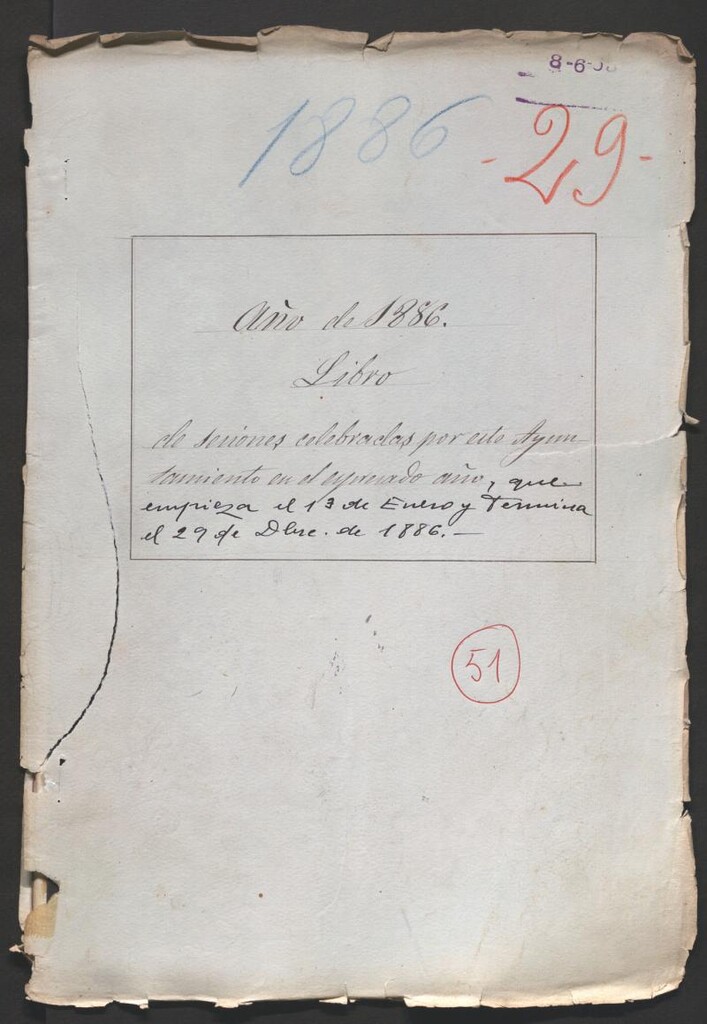 8-6-
1886 -29-
Año de 1886.
Libro
de sesiones celebradas por este Ayun-
tamiento en el expresado año, que
empieza el 13 de Enero y Termina
el 29 de Dbre. de 1886.—
51